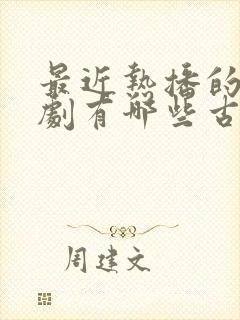 最近熱播的
劇有哪些古
周建文